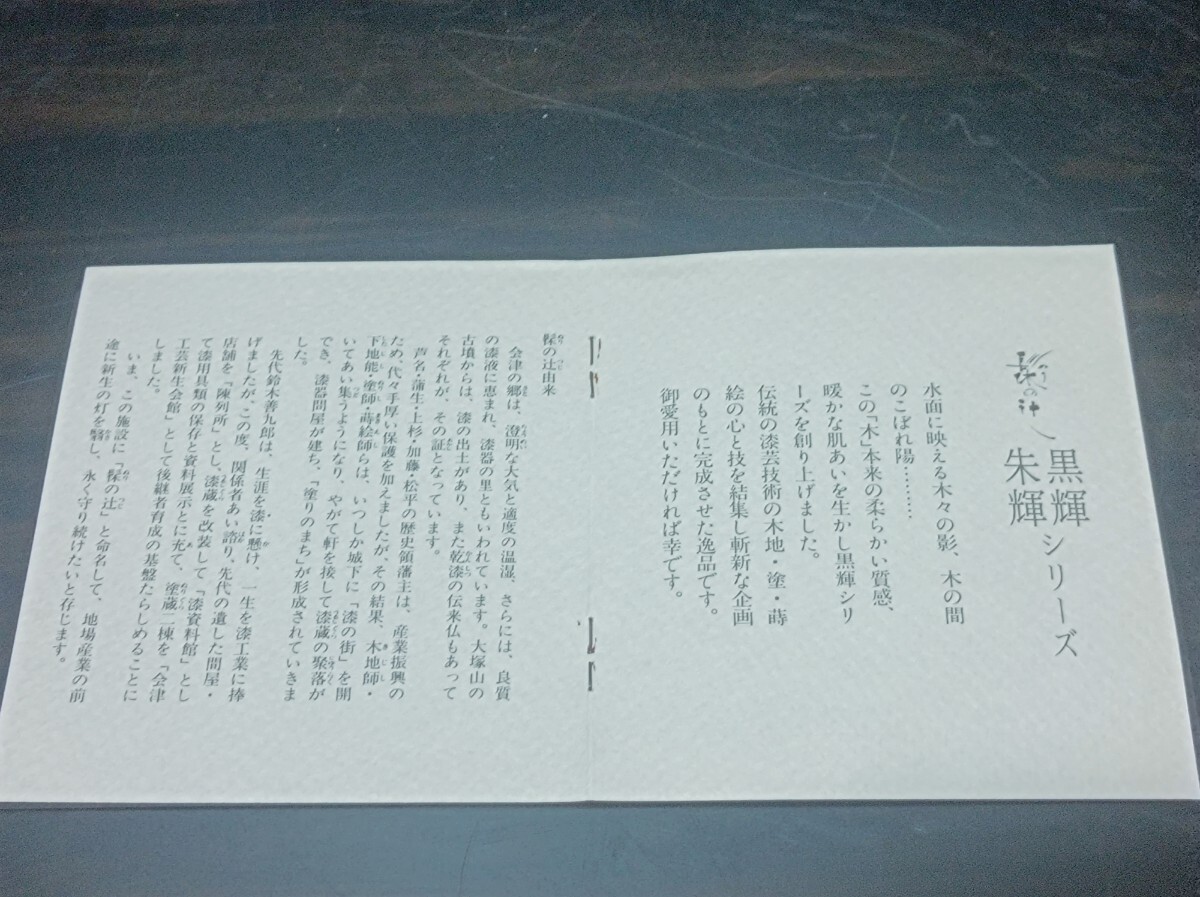 黒輝
朱輝
シリーズ
水面に映える木々の影、木の間
のこぼれ陽………
この「木」本来の柔らかい質感、
暖かな肌あいを生かし黒輝シリ
ーズを創り上げました。
伝統の漆芸技術の木地・塗・蒔
絵の心と技を結集し斬新な企画
のもとに完成させた逸品です。
御愛用いただければ幸です。
の辻由来
会津の郷は、澄明な大気と適度の温湿、さらには、良質
の漆液に恵まれ、漆器の里ともいわれています。大塚山の
古墳からは、漆の出土があり、また乾漆の伝来仏もあって
それぞれが、その証となっています。
芦名・蒲生・上杉・加藤・松平の歴史領藩主は、産業振興の
ため、代々手厚い保護を加えましたが、その結果、木地師・
下地能・塗師・蒔絵師らは、いつしか城下に「漆の街」を開
いてあい集うようになり、やがて軒を接して漆蔵の聚落が
でき、漆器問屋が建ち、「塗りのまち」が形成されていきま
した。
先代鈴木善九郎は、生涯を漆に懸け、一生を漆工業に捧
げましたが、この度、関係者あい諮り、先代の遺した問屋・
店舗を「陳列所」とし、漆蔵を改装して「漆資料館」とし
て漆用具類の保存と資料展示とに充て、塗蔵一棟を「会津
工芸新生会館」として後継者育成の基盤たらしめることに
しました。
いま、この施設に「の辻」と命名して、地場産業の前
途に新生の灯をし、永く守り続けたいと存じます。